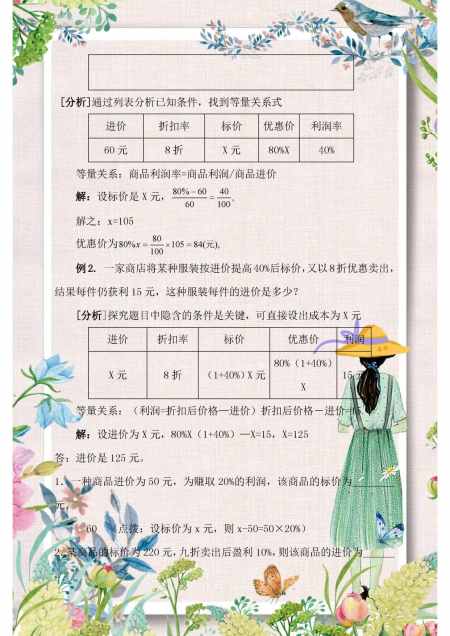 [分析]通过列表分析已知条件，找到等量关系式
进价 折扣率 标价 优惠价 利润率
60 元 8 折 X 元 80%X 40%
等量关系：商品利润率=商品利润/商品进价
解：设标价是 X 元，(80%－60)/60 = 40/100.
解之：x=105
优惠价为80%x = 80/100 ×105 = 84(元),
例2. 一家商店将某种服装按进价提高 40%后标价，又以 8 折优惠卖出，
结果每件仍获利 15 元，这种服装每件的进价是多少?
[分析]探究题目中隐含的条件是关键，可直接设出成本为 X 元
进价 折扣率 标价 优惠价 利润
X 元 8 折 (1+40%) X 元 80%（1+40%）X 15 元
等量关系：（利润=折扣后价格—进价）折扣后价格－进价=15
解：设进价为 X 元，80%X（1+40%）—X=15，X=125
答：进价是 125 元。
1. 一种商品进价为 50 元，为赚取 20%的利润，该商品的标价为
元.
60 点拨：设标价为 x 元，则 x-50=50×20%）
2. 某商品的标价为 220 元，九折卖出后盈利 10%，则该商品的进价为